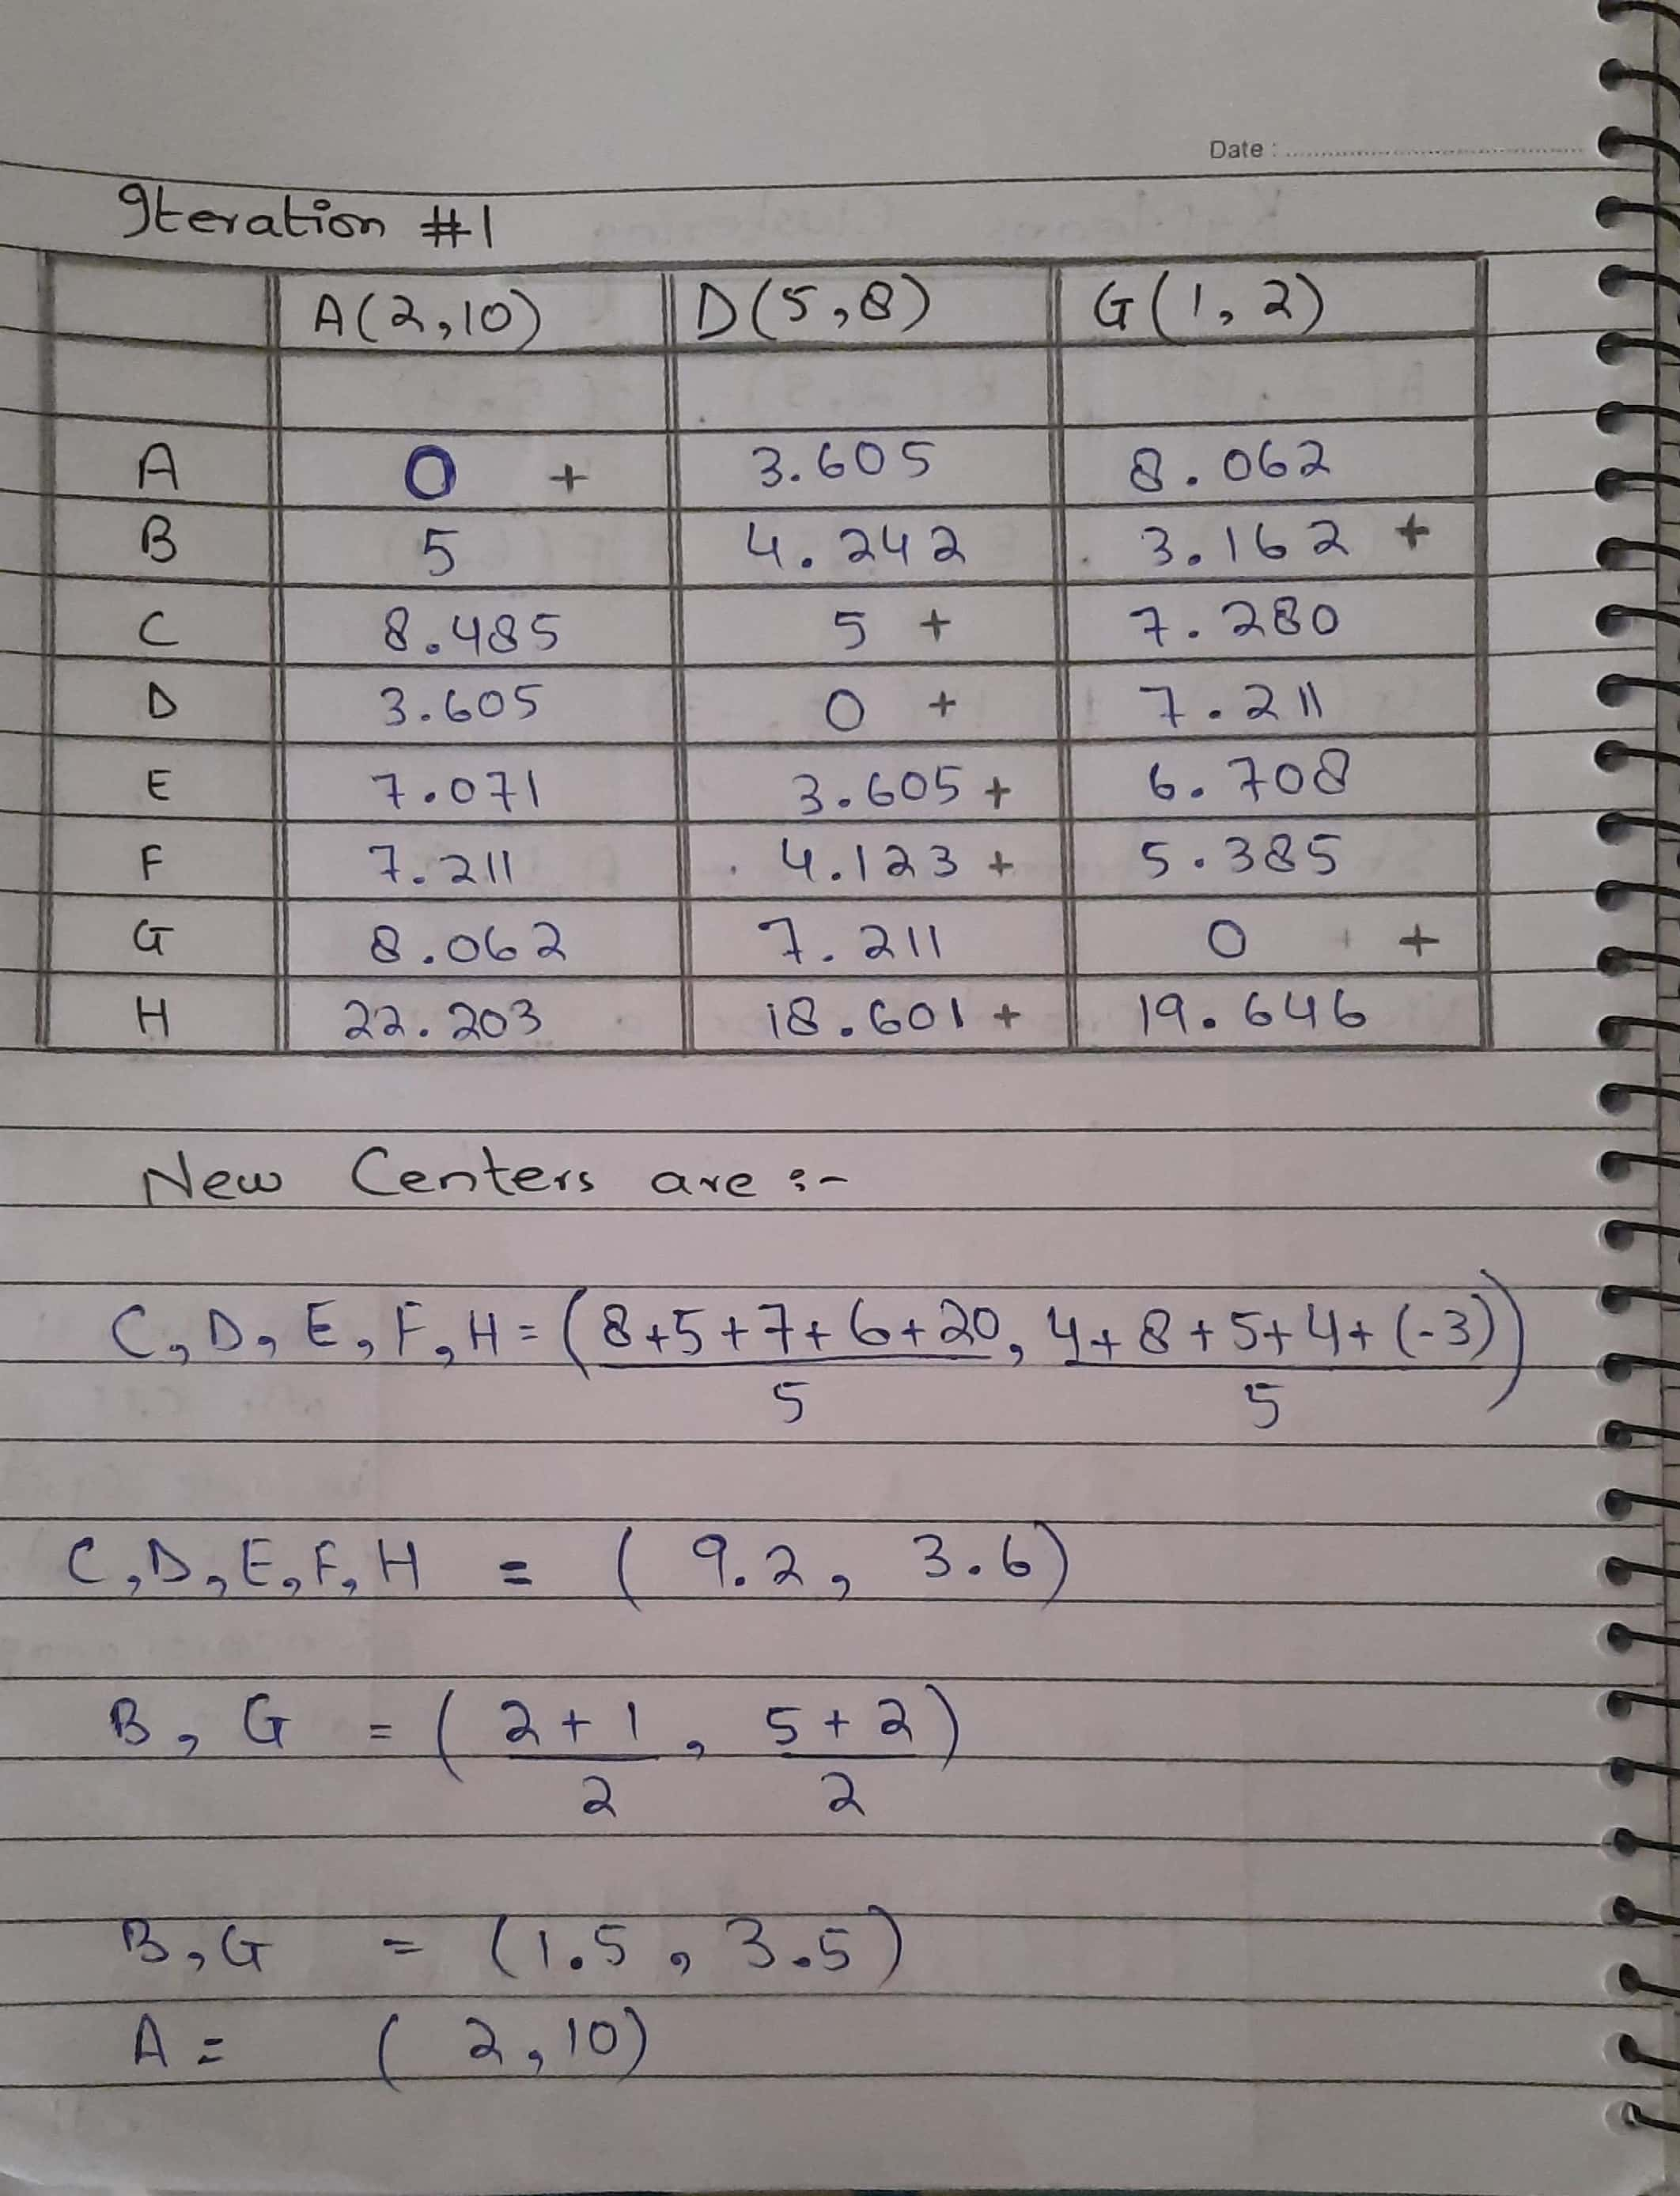 Date :
Iteration #1
A(2,10) D(5,8) G(1,2)
A 0 + 3.605 8.062
B 5 4.242 3.162 +
C 8.485 5 + 7.280
D 3.605 0 + 7.211
E 7.071 3.605 + 6.708
F 7.211 4.123 + 5.385
G 8.062 7.211 0 +
H 22.203 18.601 + 19.646
New Centers are :-
C, D, E, F, H = ( 8+5+7+6+20, 4+8+5+4+(-3))
5 5
C, D, E, F, H = ( 9.2, 3.6)
B, G = ( 2+1, 5+2)
2 2
B, G = (1.5, 3.5)
A = ( 2, 10)